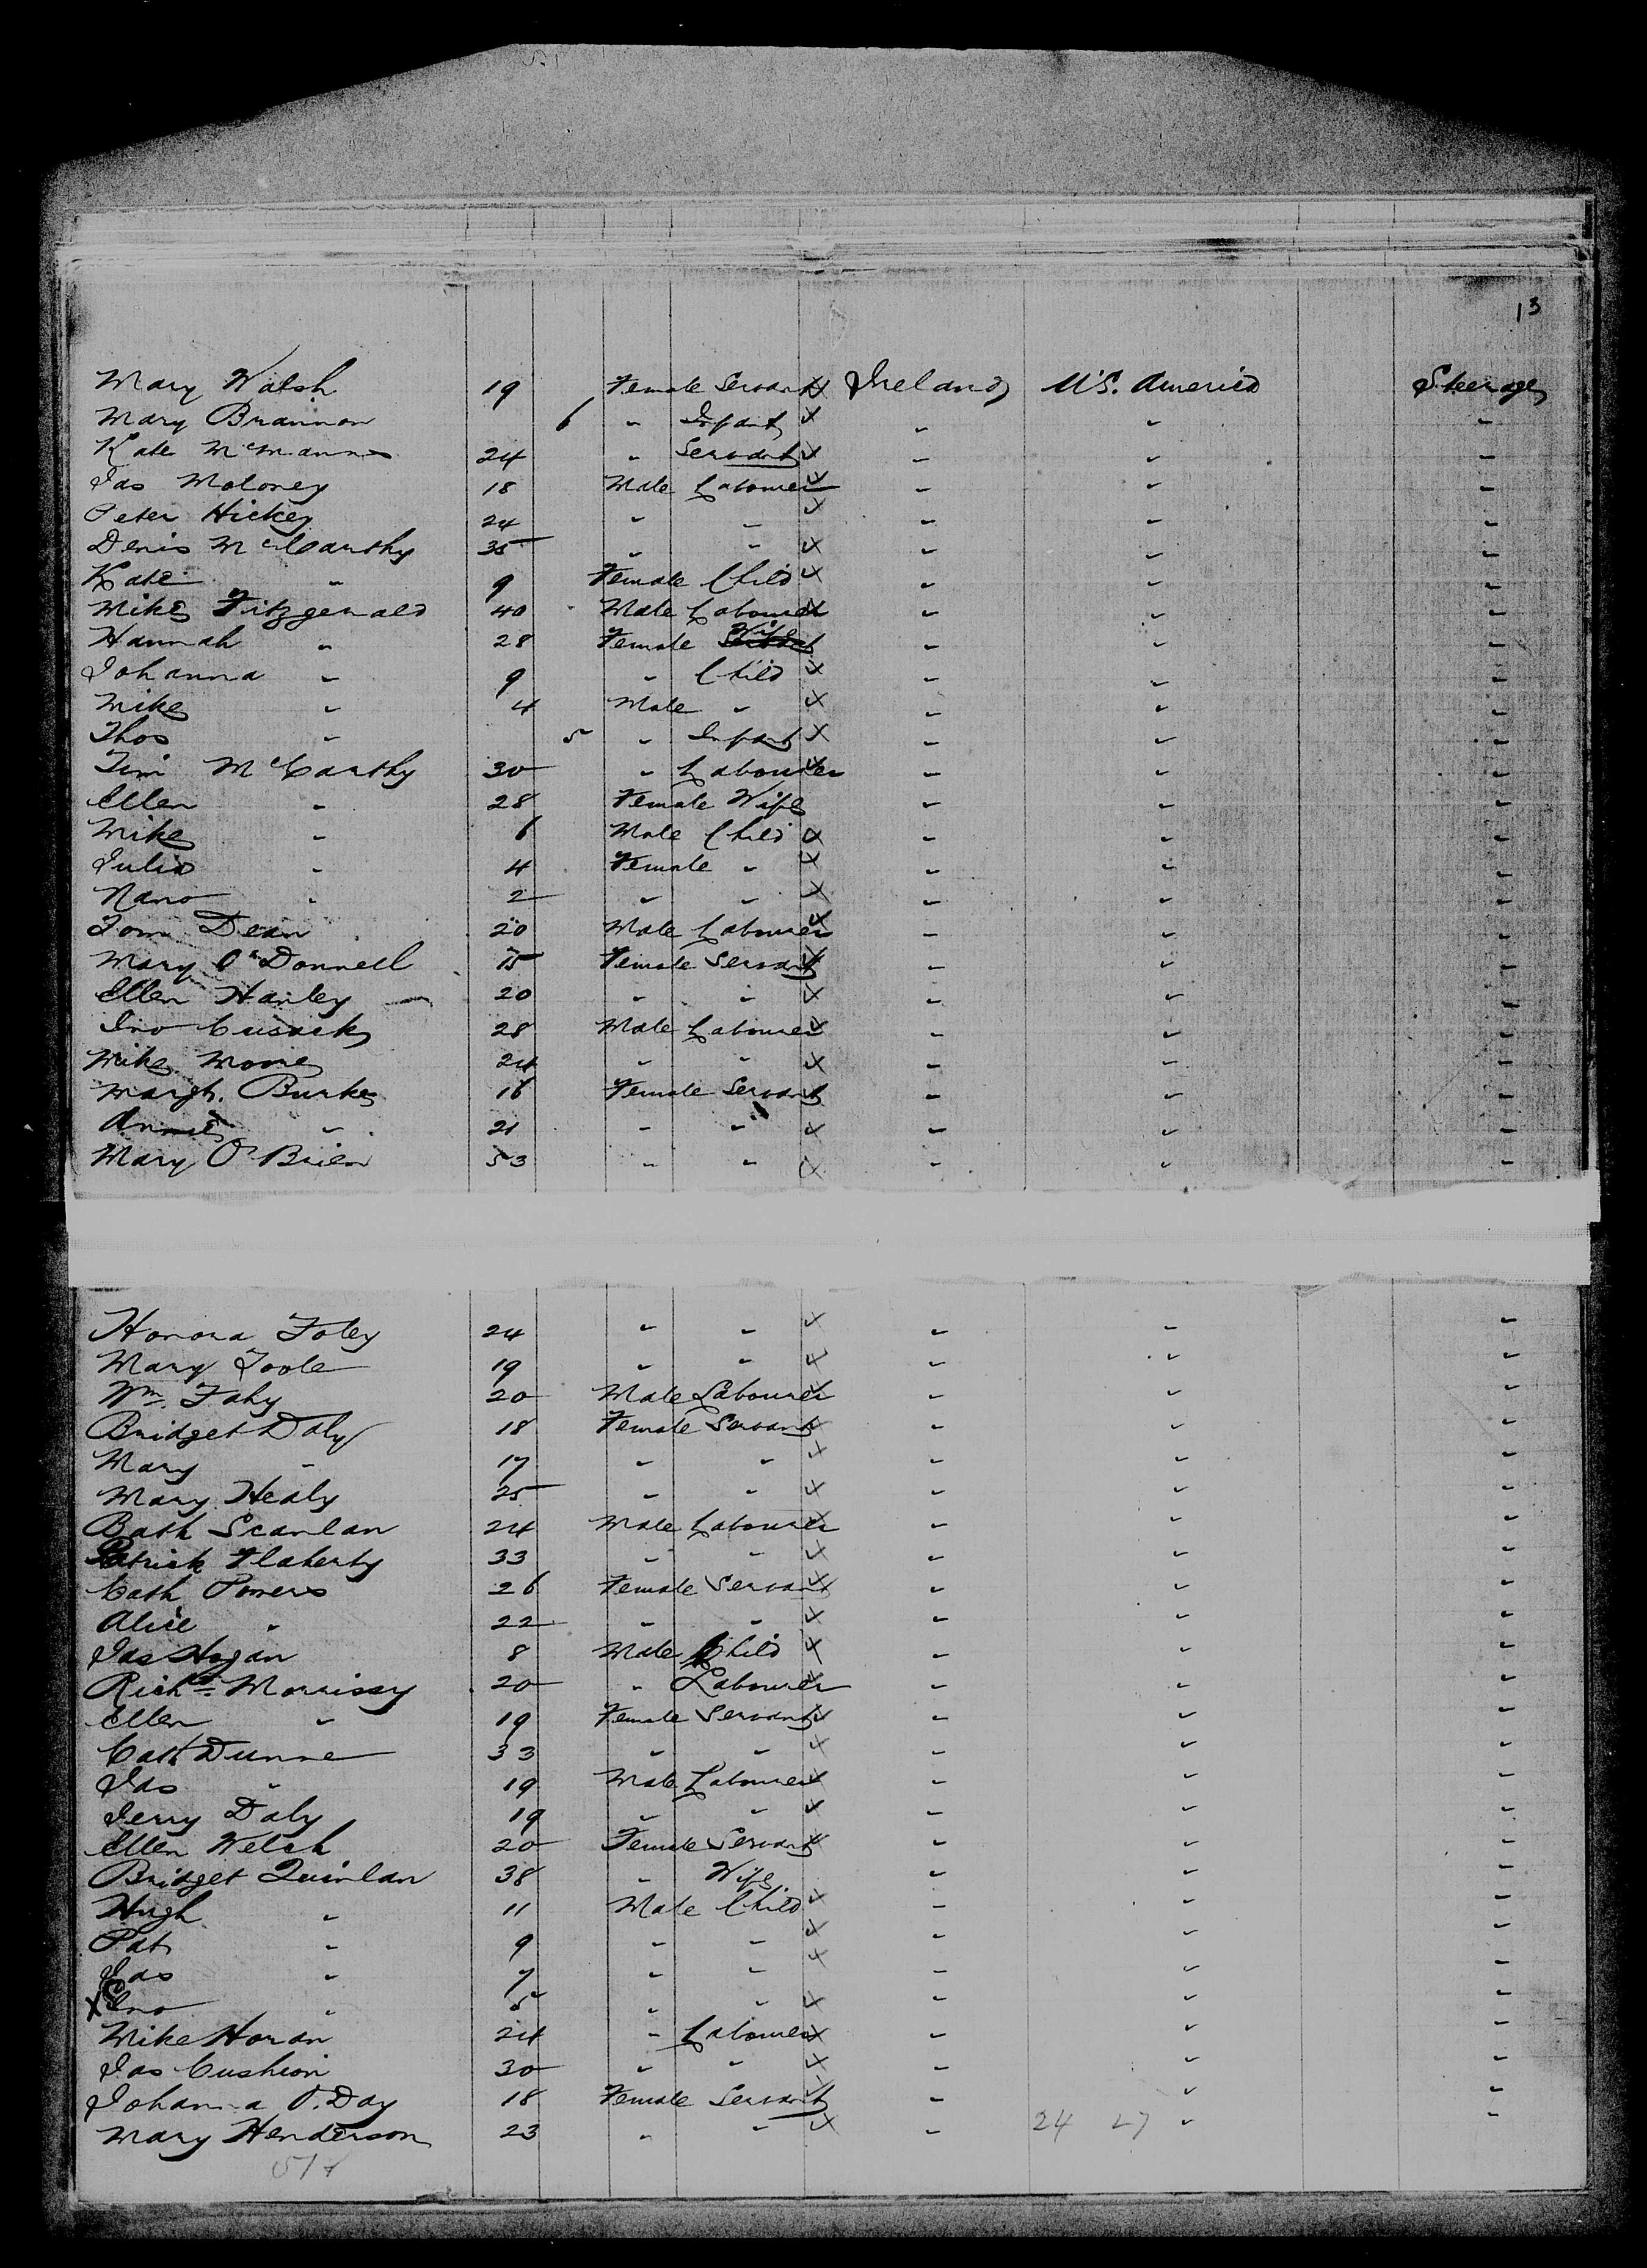 13
Mary Walsh 19 Female Servant X Ireland U.S. America Steerage
Mary Brannon 6 " Infant X " " "
Kate McManus 24 " Servant X " " "
Jas Moloney 18 Male Labourer X " " "
Peter Hickey 24 " " X " " "
Denis McCarthy 35 " " X " " "
Kate " 9 Female Child X " " "
Mike Fitzgerald 40 Male Labourer X " " "
Hannah " 28 Female Wife " " "
Johanna " 9 " Child X " " "
Mike " 4 Male " X " " "
Thos " 5 " Infant X " " "
Tim McCarthy 30 " Labourer X " " "
Ellen " 28 Female Wife " " "
Mike " 6 Male Child X " " "
Julia " 4 Female " X " " "
Nano " 2 " " X " " "
Tom Dean 20 Male Labourer X " " "
Mary O'Donnell 15 Female Servant X " " "
Ellen Hanley 20 " " X " " "
Jno Cusack 28 Male Labourer X " " "
Mike Moore 24 " " X " " "
Margt. Burke 16 Female Servant X " " "
Annie " 21 " " X " " "
Mary O'Brien 53 " " X " " "
Honora Foley 24 " " X " " "
Mary Toole 19 " " X " " "
Wm. Fahy 20 Male Labourer X " " "
Bridget Daly 18 Female Servant X " " "
Mary " 17 " " X " " "
Mary Healy 25 " " X " " "
Bath Scanlan 24 Male Labourer X " " "
Patrick Flaherty 33 " " X " " "
Cath Powers 26 Female Servant X " " "
Alice " 22 " " X " " "
Jas Hogan 8 Male Child X " " "
Richd Morrissey 20 " Labourer X " " "
Ellen " 19 Female Servant X " " "
Cath Dunne 33 " " X " " "
Jas " 19 Male Labourer X " " "
Jerry Daly 19 " " X " " "
Ellen Welsh 20 Female Servant X " " "
Bridget Quinlan 38 " Wife " " "
Hugh " 11 Male Child X " " "
Pat " 9 " " X " " "
Jas " 7 " " X " " "
X Jno " 5 " " X " " "
Mike Horan 24 " Labourer X " " "
Jas Cushion 30 " " X " " "
Johanna O'Day 18 Female Servant X " " "
Mary Henderson 23 " " X " 24 27 " "